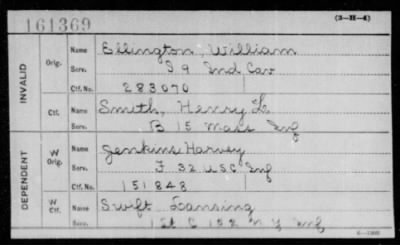 161369
(3-H-4)
INVALID
Orig.
Name Ellington, William
Serv. I 9 Ind Cav
Ctf. No. 283070
Ctf.
Name Smith, Henry L
Serv. B 15 Mass Inf
DEPENDENT
W Orig.
Name Jenkins Harvey
Serv. F 32 U S C Inf
Ctf. No. 151848
W Ctf.
Name Swift Lansing
Serv. C 152 N Y Inf